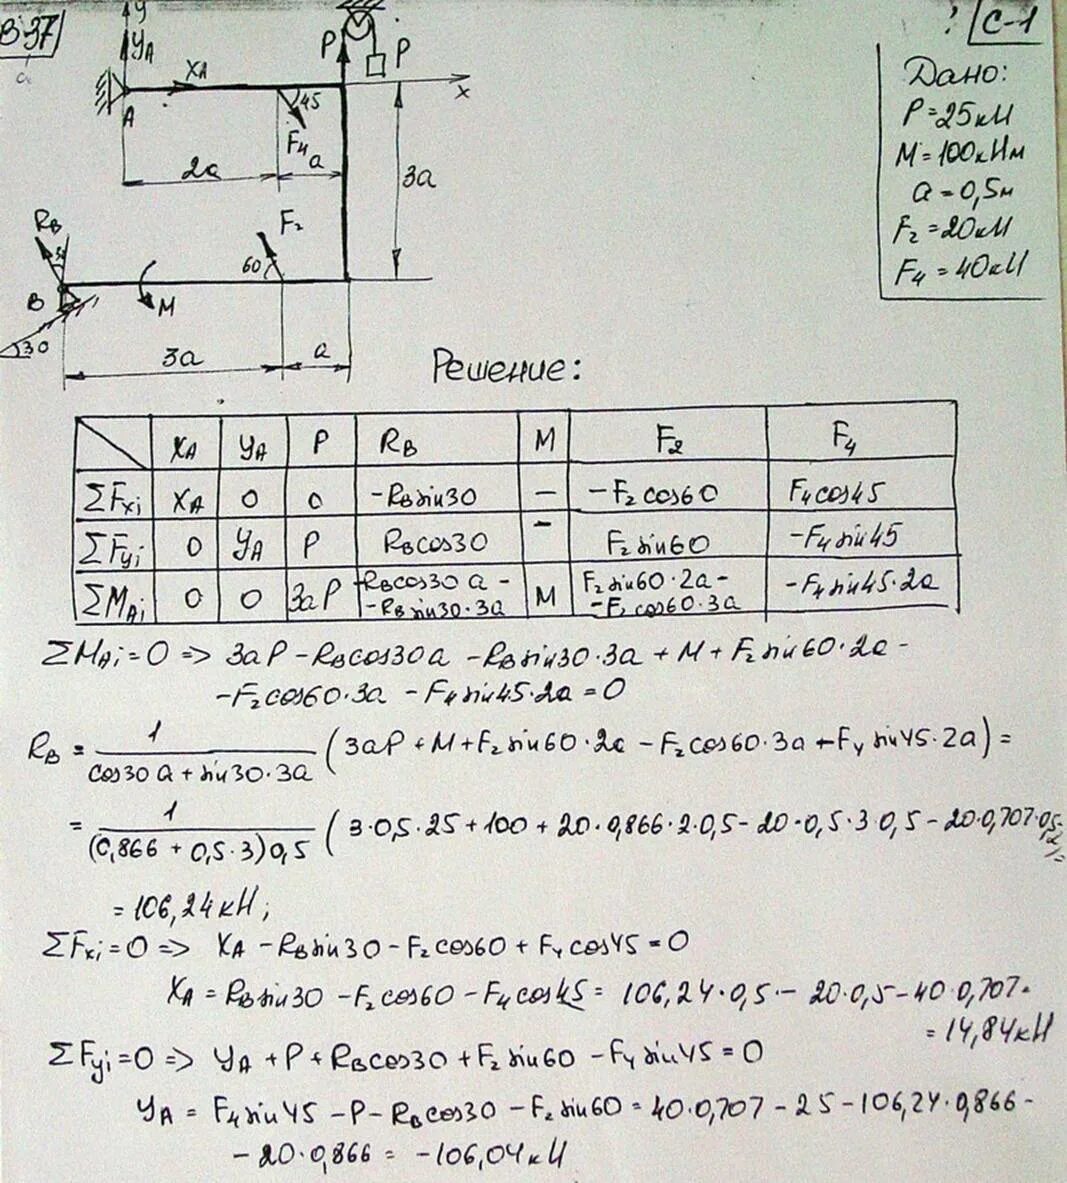 В 37
С-1
Дано:
P = 25 кН
M = 100 кНм
a = 0,5м
F₂ = 20кН
F₄ = 40кН
y
YA
XA
A
P
P
x
45
F₄
2a
a
3a
RB
F₂
60
B
M
30
3a
a
Решение:
XA YA P RB M F₂ F₄
ΣFxi XA 0 0 -RB sin30 - -F₂ cos60 F₄cos45
ΣFyi 0 YA P RBcos30 - F₂ sin60 -F₄ sin45
ΣMAi 0 0 3aP -RBcos30 a - -RB sin30·3a M F₂ sin60·2a- -F₂ cos60·3a -F₄ sin45·2a
ΣMAi = 0 => 3aP - RBcos30a - RB sin30·3a + M + F₂ sin60·2a -
-F₂cos60·3a - F₄ sin45·2a = 0
RB = 1/(cos30 a + sin30·3a) (3aP + M + F₂ sin60·2a - F₂cos60·3a - F₄ sin45·2a) =
= 1/((0,866 + 0,5·3)0,5) (3·0,5·25 + 100 + 20·0,866·2·0,5 - 20·0,5·3·0,5 - 20·0,707·0,5·2) =
= 106,24 кН;
ΣFxi = 0 => XA - RB sin30 - F₂cos60 + F₄cos45 = 0
XA = RB sin30 - F₂cos60 - F₄cos45 = 106,24·0,5 - 20·0,5 - 40·0,707 =
= 14,84 кН
ΣFyi = 0 => YA + P + RBcos30 + F₂ sin60 - F₄ sin45 = 0
YA = F₄ sin45 - P - RBcos30 - F₂ sin60 = 40·0,707 - 25 - 106,24·0,866 -
- 20·0,866 = -106,04 кН